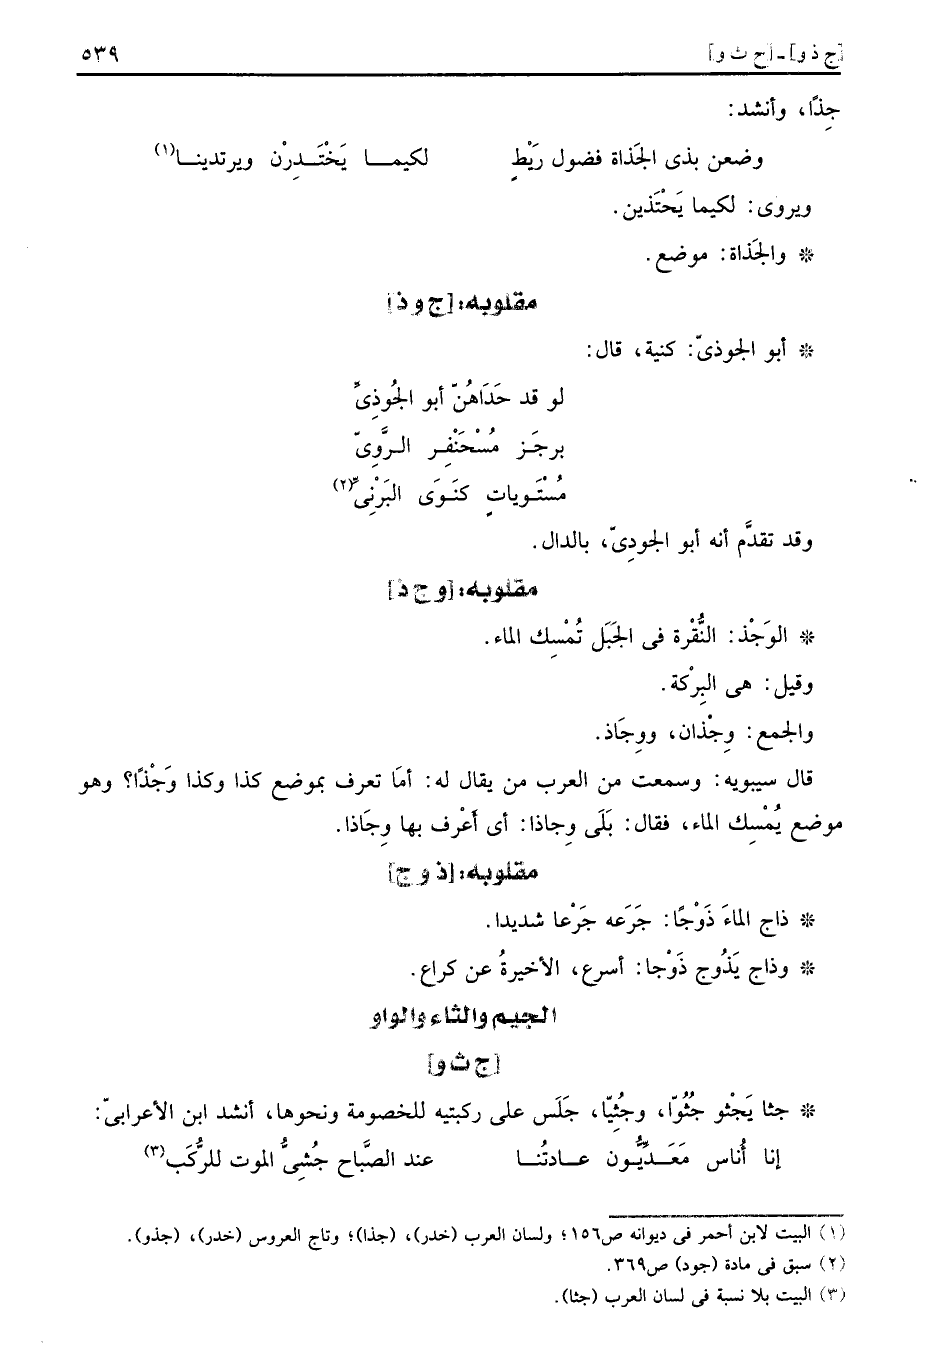 [ج ذ و] ـ [ج ث و] ٥٣٩
جِذًا، وأنشد:
وضعن بذى الجَذاة فضول رَيْطٍ لكيمــا يَخْتَــدِرْن ويرتدينــا(١)
ويروى: لكيما يَحْتَذين.
* والجَذاة: موضع.
مقلوبه: [ج و ذ]
* أبو الجوذىّ: كنية، قال:
لو قد حَدَاهُنّ أبو الجُوذِىِّ
برجَـز مُسْحَنْفِـر الـرَّوِىّ
مُسْتَـويات كنَـوَى البَرْنِىّ(٢)
وقد تقدَّم أنه أبو الجودِىّ، بالدال.
مقلوبه: [و ج ذ]
* الوَجْذ: النُّقْرة فى الجَبَل تُمْسِك الماء.
وقيل: هى البِرْكة.
والجمع: وِجْذان، ووِجَاذ.
قال سيبويه: وسمعت من العرب من يقال له: أمَا تعرف بموضع كذا وكذا وَجْذًا؟ وهو
موضع يُمْسِك الماء، فقال: بَلَى وِجاذا: أى أَعْرف بها وِجَاذا.
مقلوبه: [ذ و ج]
* ذاج الماءَ ذَوْجًا: جَرَعه جَرْعا شديدا.
* وذاج يَذُوج ذَوْجا: أسرع، الأخيرةُ عن كراع.
الجيم والثاء والواو
[ج ث و]
* جثا يَجْثو جُثُوّا، وجُثِيّا، جَلَس على ركبتيه للخصومة ونحوها، أنشد ابن الأعرابىّ:
إنا أُناس مَعَــدِّيُّـون عـادتُنـا عند الصَّباح جُثِىُّ الموت للرُّكَب(٣)
(١) البيت لابن أحمر فى ديوانه ص١٥٦؛ ولسان العرب (خدر)، (جذا)؛ وتاج العروس (خدر)، (جذو).
(٢) سبق فى مادة (جود) ص٣٦٩.
(٣) البيت بلا نسبة فى لسان العرب (جثا).